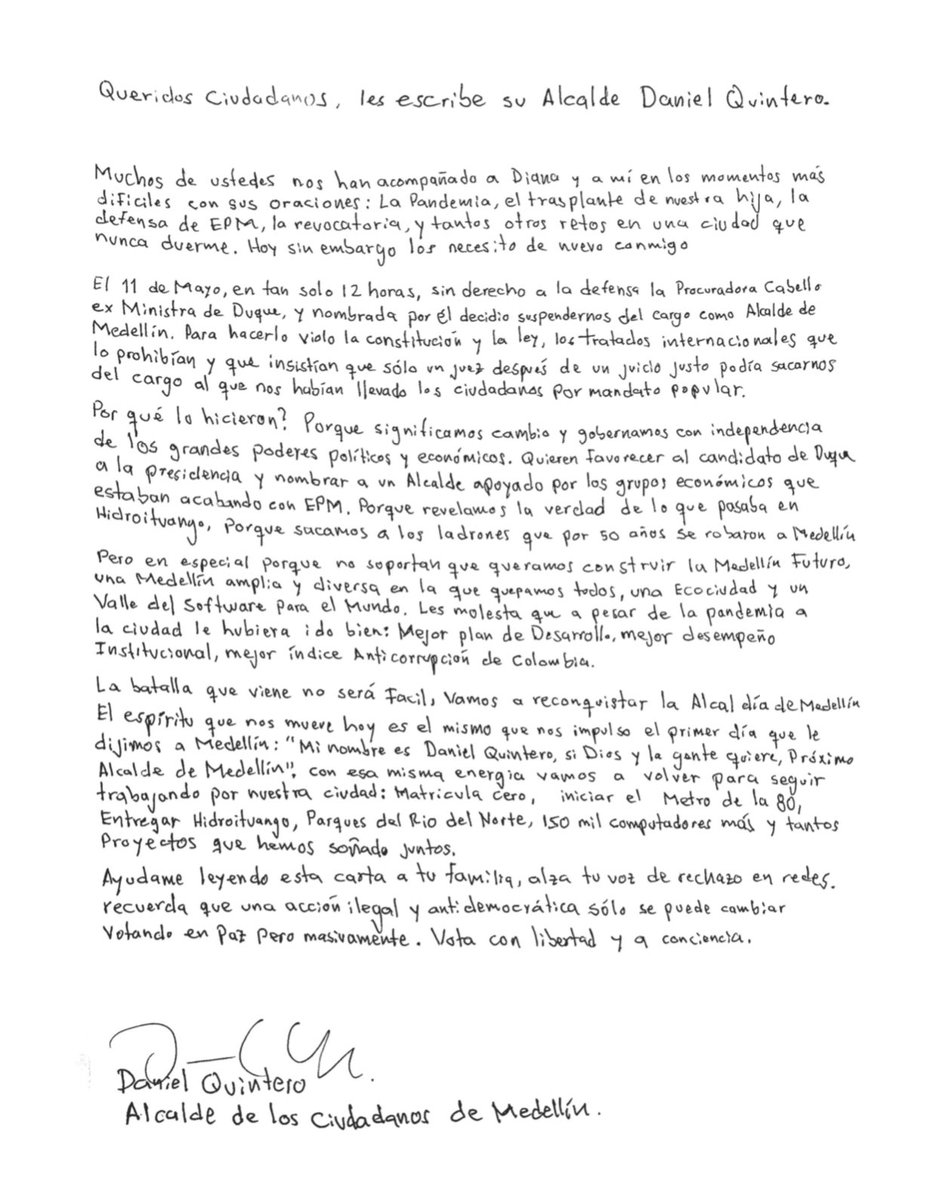 Queridos Ciudadanos, les escribe su Alcalde Daniel Quintero.
Muchos de ustedes nos han acompañado a Diana y a mí en los momentos más
dificiles con sus oraciones: La Pandemia, el trasplante de nuestra hija, la
defensa de EPM, la revocatoria, y tantos otros retos en una ciudad que
nunca duerme. Hoy sin embargo los necesito de nuevo conmigo
El 11 de Mayo, en tan solo 12 horas, sin derecho a la defensa la Procuradora Cabello
ex Ministra de Duque, y nombrada por él decidio suspendernos del cargo como Alcalde de
Medellín. Para hacerlo violo la constitución y la ley, los tratados internacionales que
lo prohibían y que insistían que sólo un juez después de un juicio justo podía sacarnos
del cargo al que nos habían llevado los ciudadanos por mandato popular.
Por qué lo hicieron? Porque significamos cambio y gobernamos con independencia
de los grandes poderes políticos y económicos. Quieren favorecer al candidato de Duque
a la presidencia y nombrar a un Alcalde apoyado por los grupos económicos que
estaban acabando con EPM. Porque revelamos la verdad de lo que pasaba en
Hidroituango, Porque sacamos a los ladrones que por 50 años se robaron a Medellín
Pero en especial porque no soportan que queramos construir la Medellín Futuro,
una Medellín amplia y diversa en la que quepamos todos, una Ecociudad y un
Valle del Software para el Mundo. Les molesta que a pesar de la pandemia a
la ciudad le hubiera ido bien: Mejor plan de Desarrollo, mejor desempeño
Institucional, mejor índice Anticorrupción de Colombia.
La batalla que viene no será Facil, Vamos a reconquistar la Alcaldía de Medellín
El espíritu que nos mueve hoy es el mismo que nos impulso el primer día que le
dijimos a Medellín: "Mi nombre es Daniel Quintero, si Dios y la gente quiere, Próximo
Alcalde de Medellín", con esa misma energia vamos a volver para seguir
trabajando por nuestra ciudad: Matricula Cero, iniciar el Metro de la 80,
Entregar Hidroituango, Parques del Rio del Norte, 150 mil computadores más y tantos
Proyectos que hemos soñado juntos.
Ayudame leyendo esta carta a tu familia, alza tu voz de rechazo en redes.
recuerda que una acción ilegal y antidemocrática sólo se puede cambiar
Votando en Paz Pero masivamente. Vota con libertad y a conciencia.
Daniel Quintero
Alcalde de los Ciudadanos de Medellín.